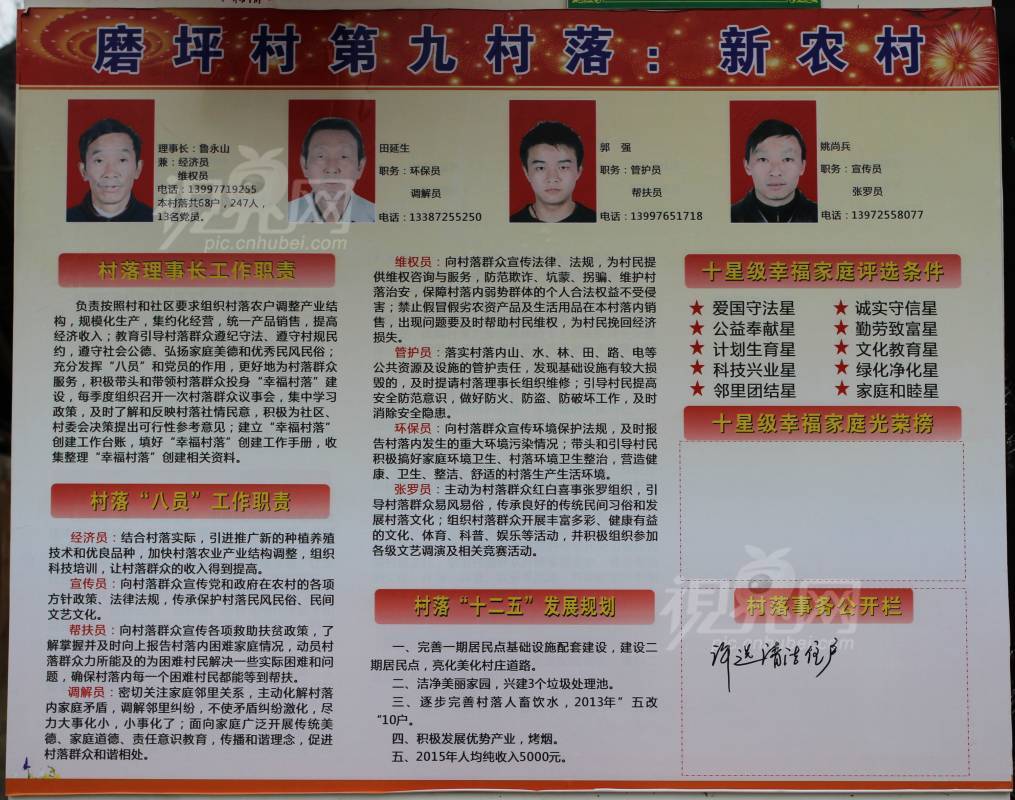 磨坪村第九村落：新农村
理事长：鲁永山
兼：经济员
维权员
电话：13997719255
本村落共68户，247人，
13名党员。
田延生
职务：环保员
调解员
电话：13387255250
郭 强
职务：管护员
帮扶员
电话：13997651718
姚尚兵
职务：宣传员
张罗员
电话：13972558077
视界网
pic.cnhubei.com
村落理事长工作职责
负责按照村和社区要求组织村落农户调整产业结
构，规模化生产，集约化经营，统一产品销售，提高
经济收入；教育引导村落群众遵纪守法、遵守村规民
约，遵守社会公德、弘扬家庭美德和优秀民风民俗；
充分发挥“八员”和党员的作用，更好地为村落群众
服务，积极带头和带领村落群众投身“幸福村落”建
设，每季度组织召开一次村落群众议事会，集中学习
政策，及时了解和反映村落社情民意，积极为社区、
村委会决策提出可行性参考意见；建立“幸福村落”
创建工作台账，填好“幸福村落”创建工作手册，收
集整理“幸福村落”创建相关资料。
村落“八员”工作职责
经济员：结合村落实际，引进推广新的种植养殖
技术和优良品种，加快村落农业产业结构调整，组织
科技培训，让村落群众的收入得到提高。
宣传员：向村落群众宣传党和政府在农村的各项
方针政策、法律法规，传承保护村落民风民俗、民间
文艺文化。
帮扶员：向村落群众宣传各项救助扶贫政策，了
解掌握并及时向上报告村落内困难家庭情况，动员村
落群众力所能及的为困难村民解决一些实际困难和问
题，确保村落内每一个困难村民都能等到帮扶。
调解员：密切关注家庭邻里关系，主动化解村落
内家庭矛盾，调解邻里纠纷，不使矛盾纠纷激化，尽
力大事化小，小事化了；面向家庭广泛开展传统美
德、家庭道德、责任意识教育，传播和谐理念，促进
村落群众和谐相处。
维权员：向村落群众宣传法律、法规，为村民提
供维权咨询与服务，防范欺诈、坑蒙、拐骗、维护村
落治安，保障村落内弱势群体的个人合法权益不受侵
害；禁止假冒假劣农资产品及生活用品在本村落内销
售，出现问题要及时帮助村民维权，为村民挽回经济
损失。
管护员：落实村落内山、水、林、田、路、电等
公共资源及设施的管护责任，发现基础设施有较大损
毁的，及时提请村落理事长组织维修；引导村民提高
安全防范意识，做好防火、防盗、防破坏工作，及时
消除安全隐患。
环保员：向村落群众宣传环境保护法规，及时报
告村落内发生的重大环境污染情况；带头和引导村民
积极搞好家庭环境卫生、村落环境卫生整治，营造健
康、卫生、整洁、舒适的村落生产生活环境。
张罗员：主动为村落群众红白喜事张罗组织，引
导村落群众易风易俗，传承良好的传统民间习俗和发
展村落文化；组织村落群众开展丰富多彩、健康有益
的文化、体育、科普、娱乐等活动，并积极组织参加
各级文艺调演及相关竞赛活动。
村落“十二五”发展规划
一、完善一期居民点基础设施配套建设，建设二
期居民点，亮化美化村庄道路。
二、洁净美丽家园，兴建3个垃圾处理池。
三、逐步完善村落人畜饮水，2013年“五改
“10户。
四、积极发展优势产业，烤烟。
五、2015年人均纯收入5000元。
十星级幸福家庭评选条件
★ 爱国守法星 ★ 诚实守信星
★ 公益奉献星 ★ 勤劳致富星
★ 计划生育星 ★ 文化教育星
★ 科技兴业星 ★ 绿化净化星
★ 邻里团结星 ★ 家庭和睦星
十星级幸福家庭光荣榜
视界网
pic.cnhubei.com
村落事务公开栏
评选清洁住户